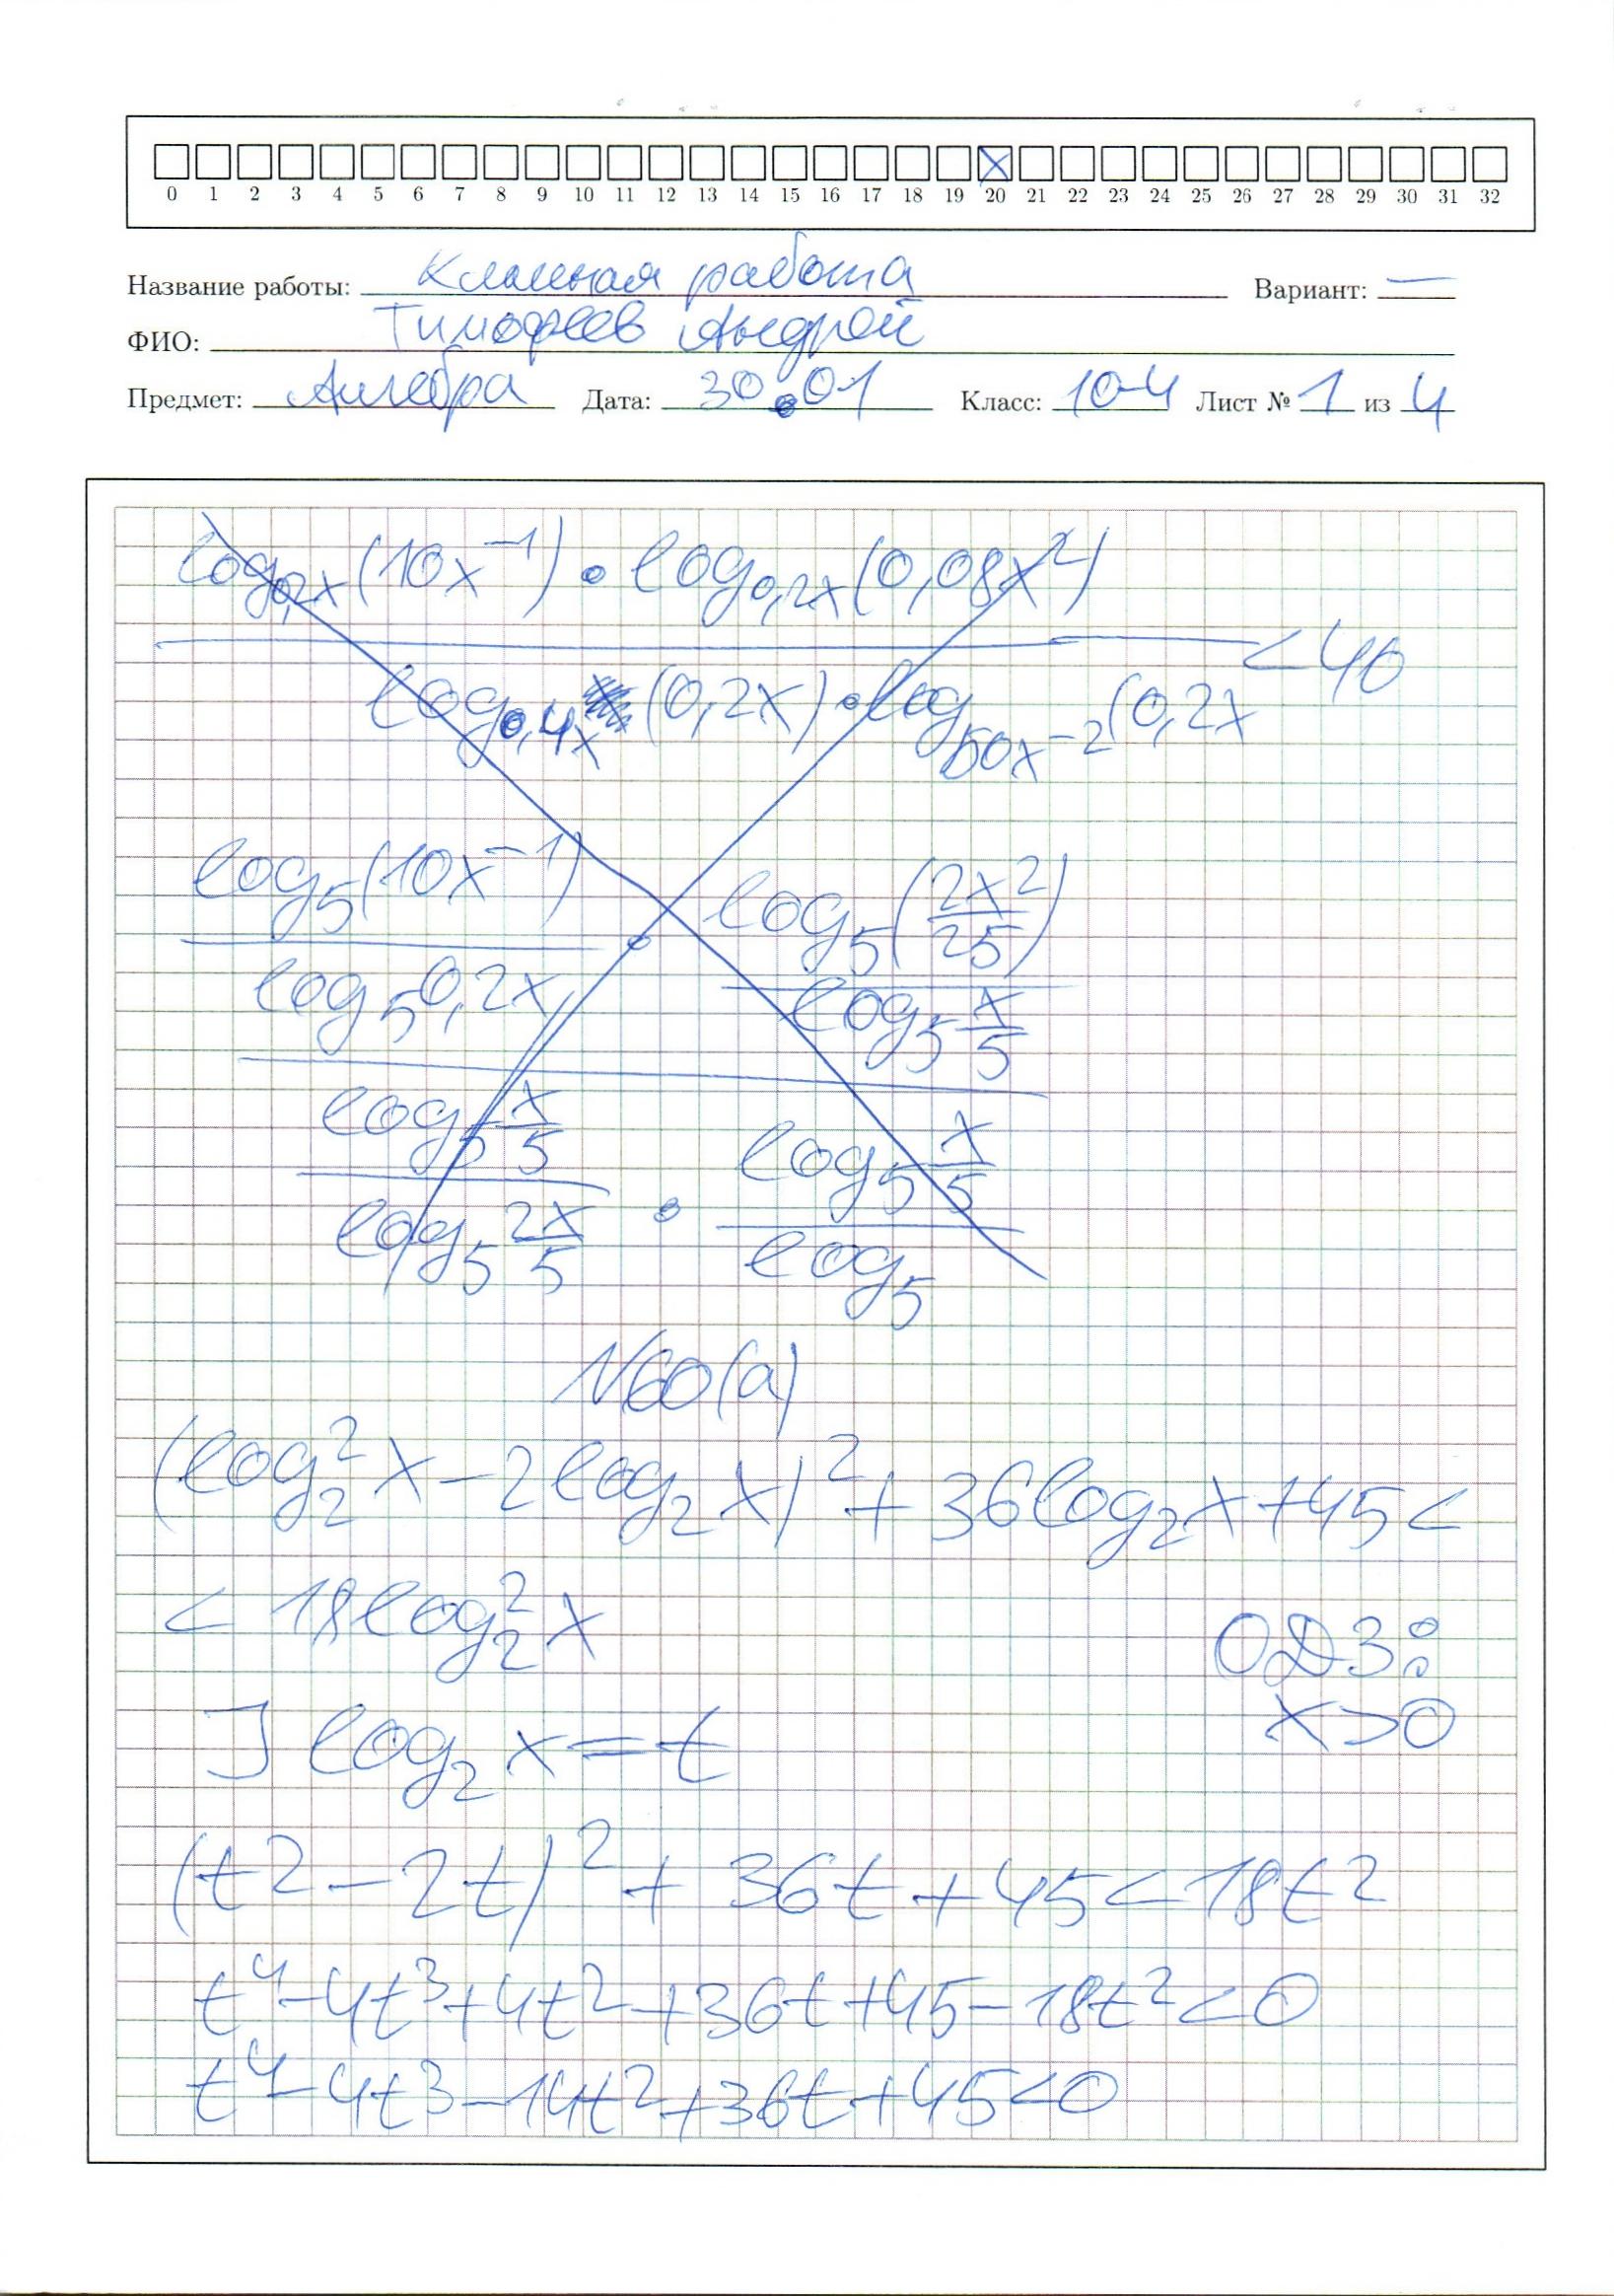 0 1 2 3 4 5 6 7 8 9 10 11 12 13 14 15 16 17 18 19 20 21 22 23 24 25 26 27 28 29 30 31 32
Название работы: Классная работа Вариант: —
ФИО: Тимофеев Андрей
Предмет: Алгебра Дата: 30.01 Класс: 10-4 Лист № 1 из 4
log₀,₂ₓ(10x⁻¹) • log₀,₂ₓ(0,08x²)
< 40
log₀,₄ₓ(0,2x) • log₅₀ₓ₋₂(0,2x
log₅(10x⁻¹) • log₅(2x²/25)
log₅0,2x log₅ x/5
log₅ x/5 • log₅ x/5
log₅ 2x/5 log₅
N60(а)
(log₂²x − 2log₂x)² + 36log₂x + 45 <
< 18log₂²x
ОДЗ:
J log₂x = t x > 0
(t² − 2t)² + 36t + 45 < 18t²
t⁴ − 4t³ + 4t² + 36t + 45 − 18t² < 0
t⁴ − 4t³ − 14t² + 36t + 45 < 0